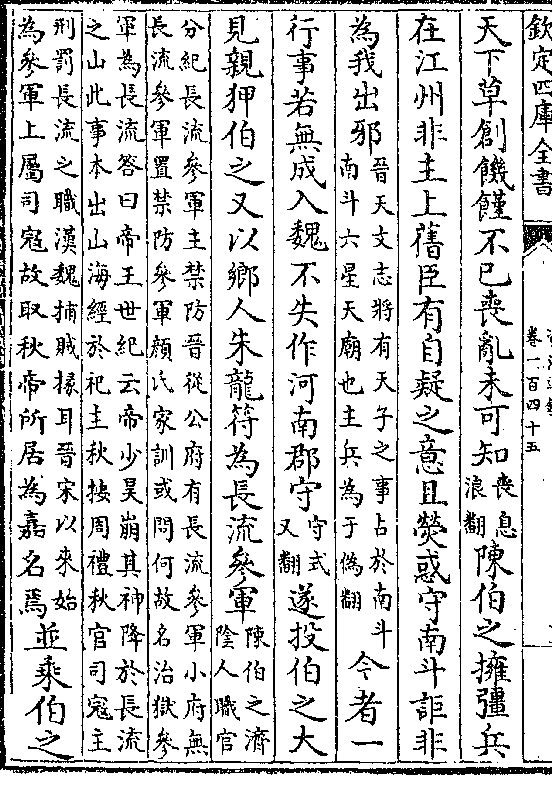 欽定四庫全書
卷一百四十五
天下草創饑饉不已喪亂未可知喪息浪翻陳伯之擁彊兵
在江州非主上舊臣有自疑之意且熒惑守南斗詎非
為我出邪晉天文志將有天子之事占於南斗南斗六星天廟也主兵為于偽翻今者一
行事若無成入魏不失作河南郡守守式又翻遂投伯之大
見親狎伯之又以鄉人朱龍符為長流參軍陳伯之濟隂人職官
分紀長流參軍主禁防晉從公府有長流參軍小府無
長流參軍置禁防參軍顔氏家訓或問何故名治獄參
軍為長流答曰帝王世紀云帝少昊崩其神降於長流
之山此事本出山海經於祀主秋按周禮秋官司寇主
刑罰長流之職漢魏捕賊掾耳晉宋以來始
為參軍上屬司寇故取秋帝所居為嘉名焉並乘伯之